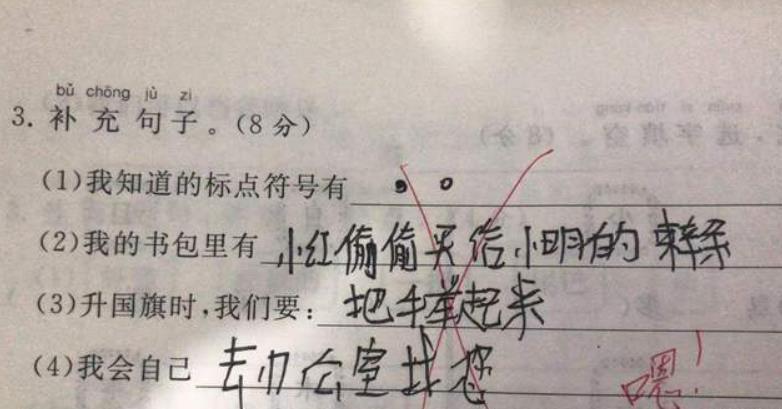 bǔ chōng jù zi
3. 补充句子。(8分)
(1)我知道的标点符号有 , 。
(2)我的书包里有 小红偷偷买给小明的辣条
(3)升国旗时,我们要: 把手举起来
(4)我会自己 去办公室找您
嗯!